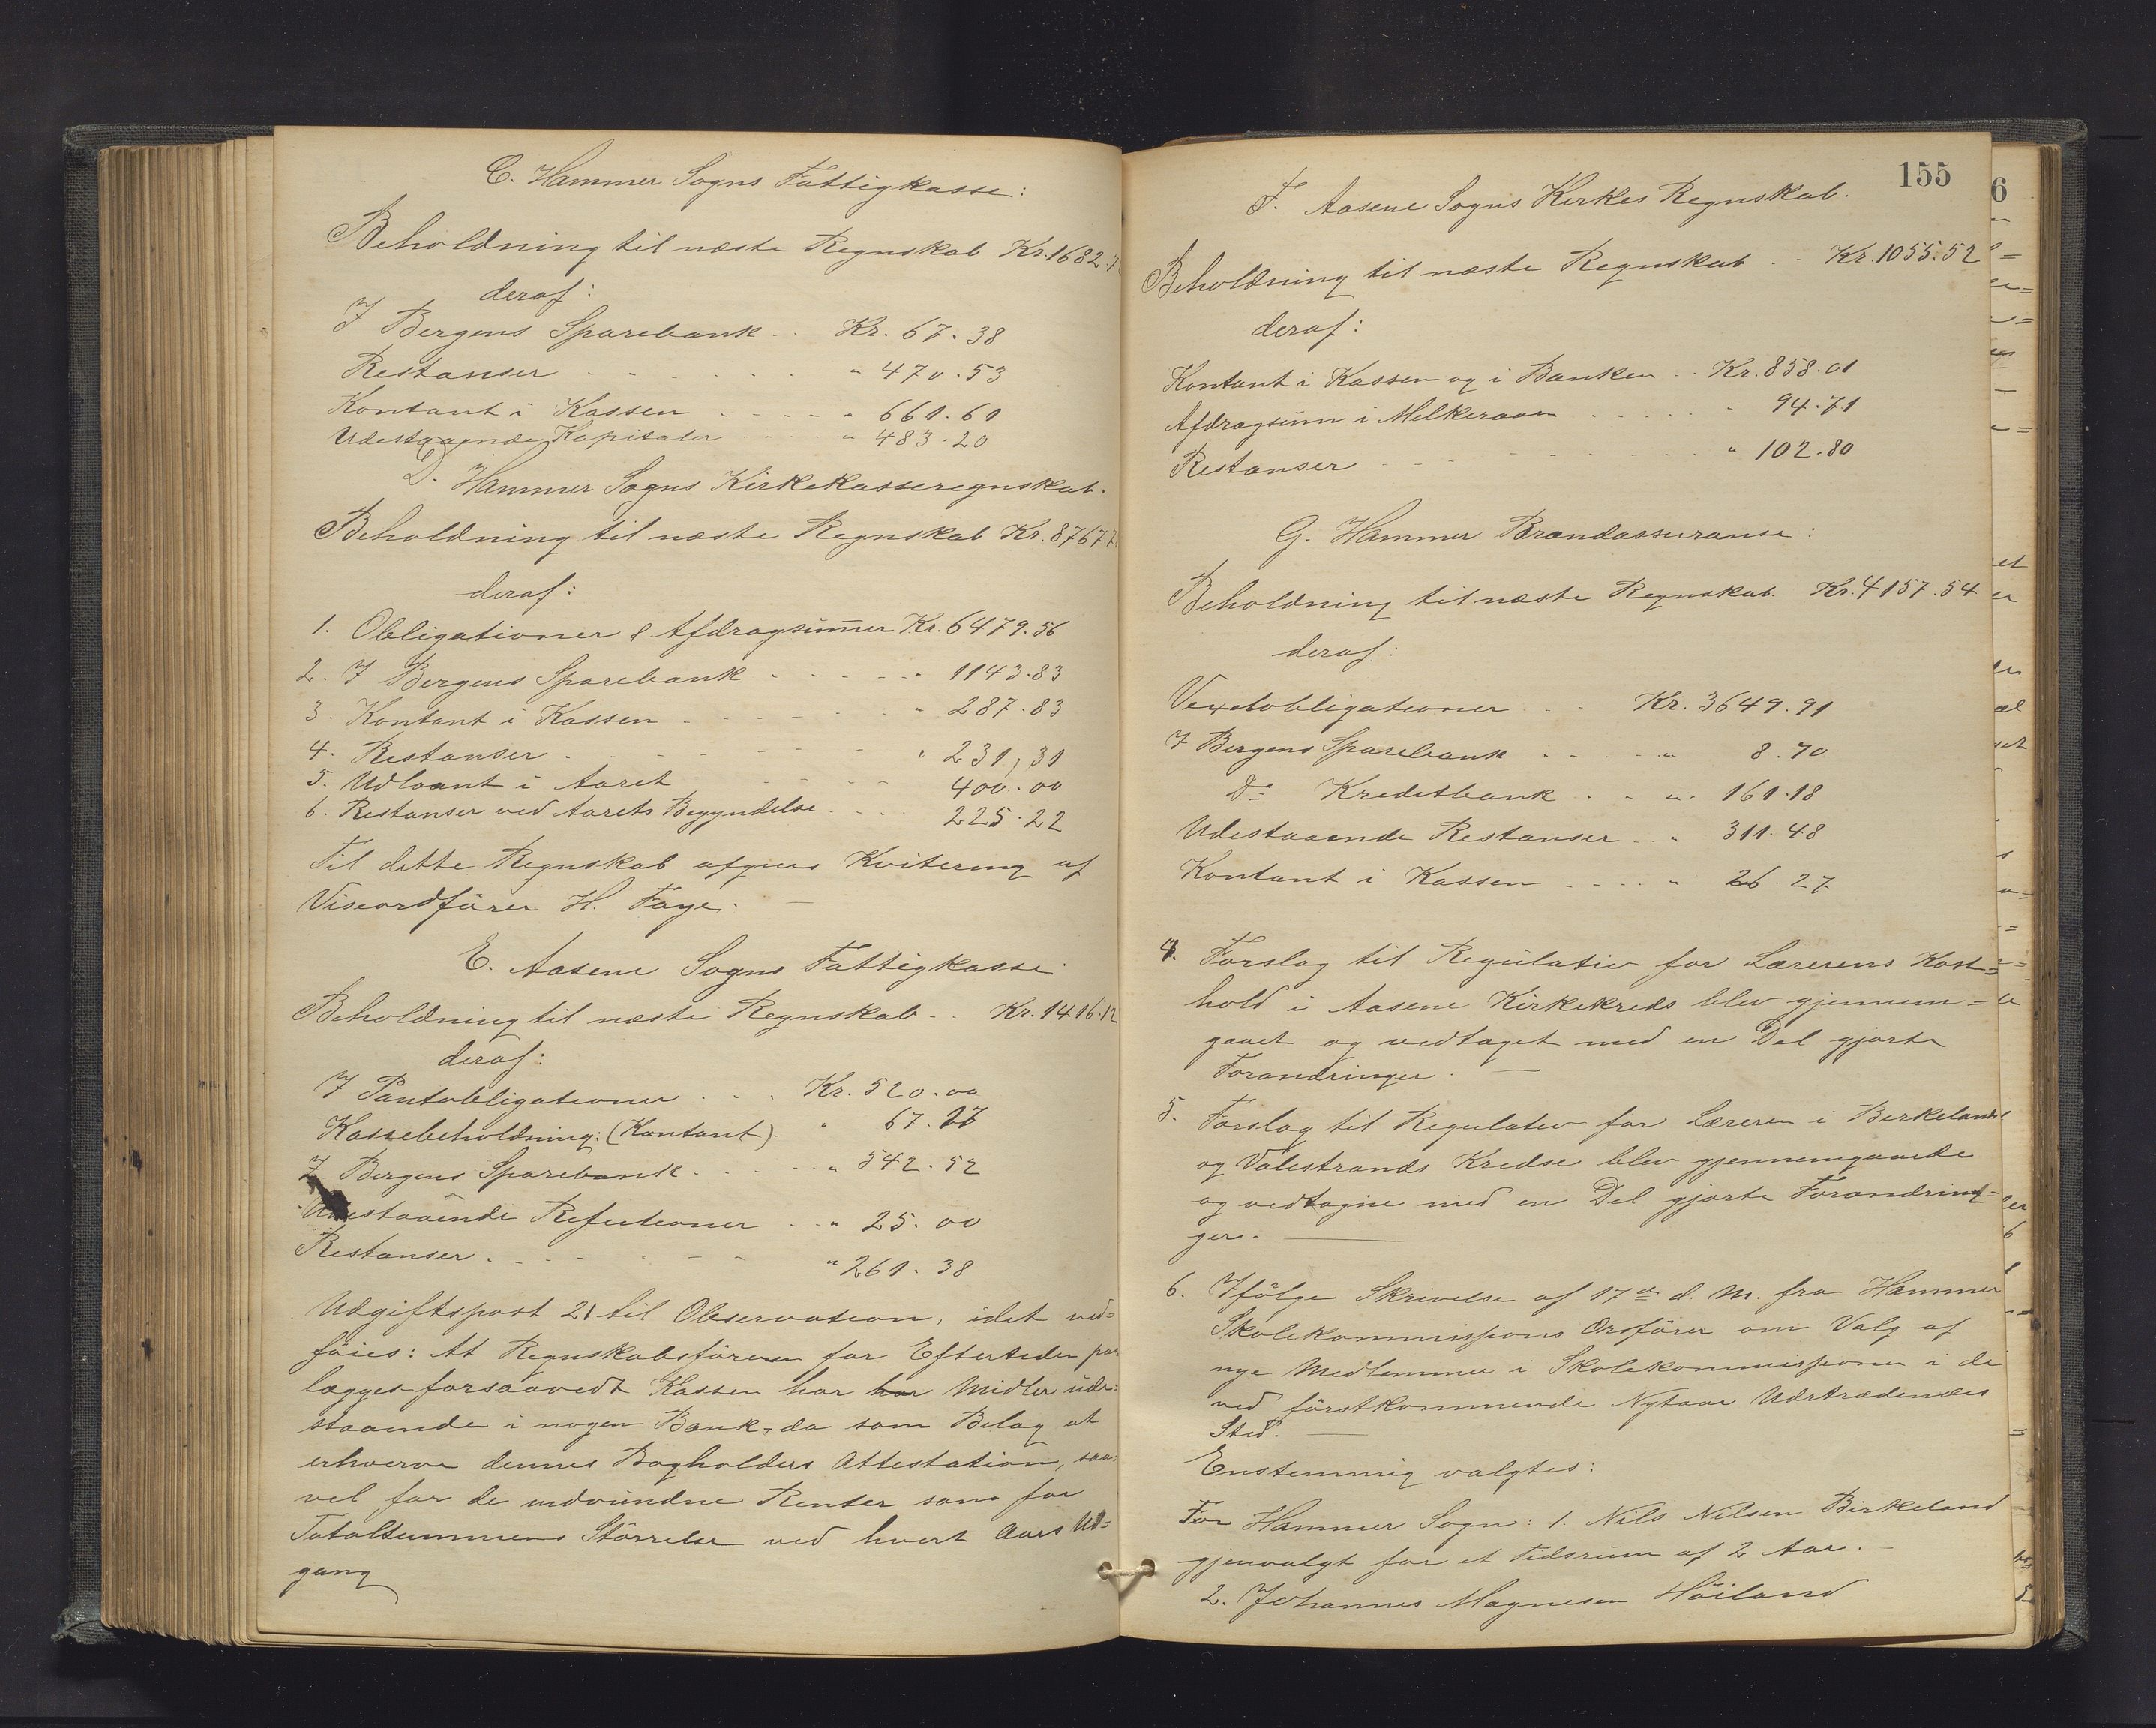 C. Hammer Sogns Fattigkasse:
Beholdning til næste Regnskab Kr. 1682.7
deraf:
I Bergens Sparebank . . Kr. 67.38
Restanser . . . . . . " 470.53
Kontant i Kassen . . . . " 661.61
Udestaaende Kapitaler . . . . " 483.20
D. Hammer Sogns Kirkekasseregnskab.
Beholdning til næste Regnskab Kr. 8767.7
deraf:
1. Obligationer & Afdragsum̄er Kr. 6479.56
2. I Bergens Sparebank . . . . . " 1143.83
3. Kontant i Kassen . . . . . . " 287.83
4. Restanser . . . . . . " 231,31
5. Udlaant i Aaret . . . . 400.00
6. Restanser ved Aarets Begyndelse . . . . 225.22
Til dette Regnskab afgives Kvitering af
Viseordfører H. Faye. —
E. Aasene Sogns Fattigkasse
Beholdning til næste Regnskab . . Kr. 1416.12
deraf:
I Pantobligationer . . . Kr. 520.00
Kassebeholdning: (Kontant) . " 67.17
I Bergens Sparebank . . . . " 542.52
Udestaaende Refutioner . . " 25.00
Restanser . . . . . . " 261.38
Udgiftspost 21 til Observation, idet ved=
føies: At Regnskabsføreren for Eftertiden paa
lægges forsaavidt Kassen har har Midler ude=
staaende i nogen Bank, da som Bilag at
erhverve dennes Bogholders Attestation, saa=
vel for de indvundne Renter som for
Totalsummens Størrelse ved hvert Aars Ud=
gang
155
F. Aasene Sogns Kirkes Regnskab.
Beholdning til næste Regnskab . . Kr. 1055.52
deraf:
Kontant i Kassen og i Banken . . Kr. 858.01
Afdragsum i Melkeraaen . . . . . " 94.71
Restanser . . . . . . . . " 102.80
G. Hammer Brandassuranse:
Beholdning til næste Regnskab Kr. 4157.54
deraf:
Vexelobligationer . . Kr. 3649.91
I Bergens Sparebank . . . . " 8.70
Do Kreditbank . . " 161.18
Udestaaende Restanser . . " 311.48
Kontant i Kassen . . . . " 26.27
4. Forslag til Regulativ for Lærerens Kost=
hold i Aasene Kirkekreds blev gjennem=
gaaet og vedtaget med en Del gjorte
Forandringer. —
5. Forslag til Regulativ for Læreren i Birkelands
og Valestrands Kredse blev gjennemgaaede
og vedtagne med en Del gjorte Forandrin=
ger. —
6. Ifølge Skrivelse af 17de d. M. fra Hammer
Skolekommissions Ordfører om Valg af
nye Medlemmer i Skolekommissionen i de
ved førstkommende Nytaar Udtrædendes
Sted. —
Enstemmig valgtes:
For Hammer Sogn: 1. Nils Nilsen Birkeland
gjenvalgt for et Tidsrum af 2 Aar. —
2. Johannes Magnesen Høiland